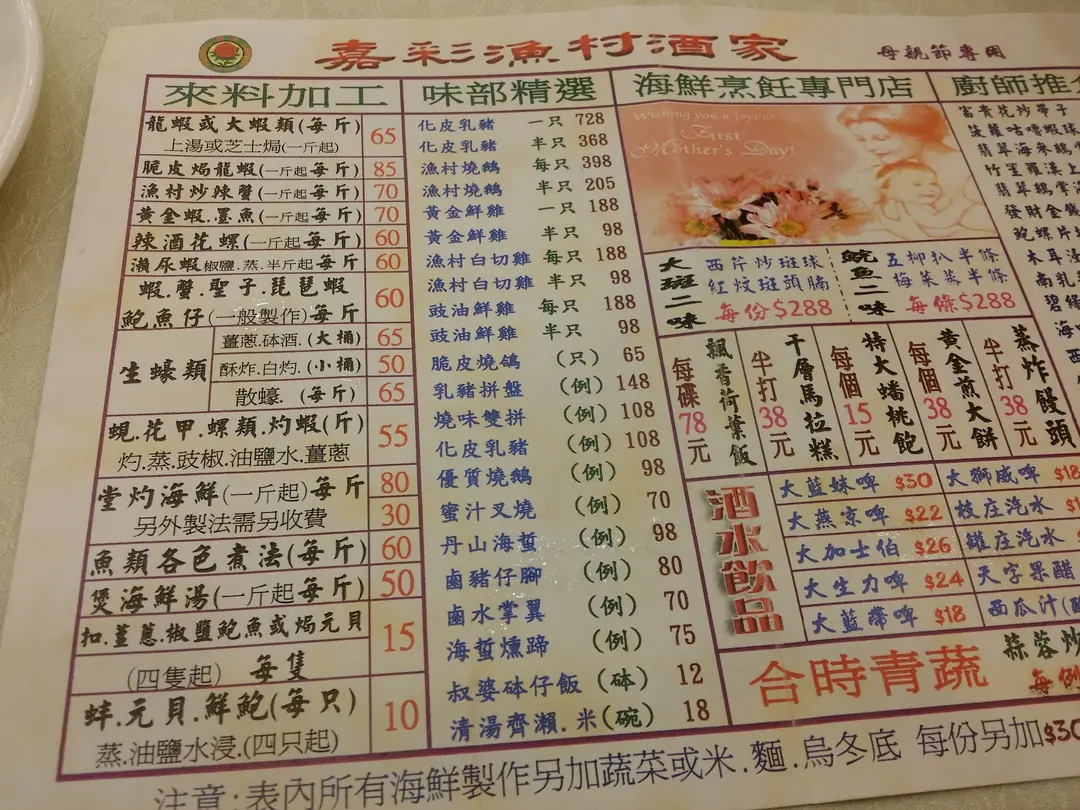 嘉彩漁村酒家
母親節專用
來料加工
龍蝦或大蝦類(每斤) 65
上湯或芝士焗(一斤起)
脆皮焗龍蝦(一斤起每斤) 85
漁村炒辣蟹(一斤起每斤) 70
黃金蝦.墨魚(一斤起每斤) 70
辣酒花螺(一斤起每斤) 60
瀨尿蝦椒鹽.蒸.半斤起每斤 60
蝦.蟹.聖子.琵琶蝦 60
鮑魚仔(一般製作)每斤
生蠔類
薑蔥.砵酒.(大桶) 65
酥炸.白灼.(小桶) 50
散蠔.(每斤) 65
蜆.花甲.螺類.灼蝦(斤) 55
灼.蒸.豉椒.油鹽水.薑蔥
堂灼海鮮(一斤起)每斤 80
另外製法需另收費 30
魚類各色煮法(每斤) 60
煲海鮮湯(一斤起每斤) 50
扣.薑蔥.椒鹽鮑魚或焗元貝 15
(四隻起) 每隻
蚌.元貝.鮮鮑(每只) 10
蒸.油鹽水浸.(四只起)
味部精選
化皮乳豬 一只 728
化皮乳豬 半只 368
漁村燒鵝 每只 398
漁村燒鵝 半只 205
黃金鮮雞 一只 188
黃金鮮雞 半只 98
漁村白切雞 每只 188
漁村白切雞 半只 98
豉油鮮雞 每只 188
豉油鮮雞 半只 98
脆皮燒鴿 (只) 65
乳豬拼盤 (例) 148
燒味雙拼 (例) 108
化皮乳豬 (例) 108
優質燒鵝 (例) 98
蜜汁叉燒 (例) 70
丹山海蜇 (例) 98
鹵豬仔腳 (例) 80
鹵水掌翼 (例) 70
海蜇燻蹄 (例) 75
叔婆砵仔飯 (砵) 12
清湯齊瀨.米(碗) 18
海鮮烹飪專門店
Wishing you a joyous
First
Mother's Day!
大斑二味
西芹炒斑球
紅炆斑頭腩
每份$288
鯇魚二味
五柳扒半條
梅菜蒸半條
每條$288
飄香荷葉飯
每碟78元
千層馬拉糕
半打38元
特大蟠桃飽
每個15元
黃金煎大餅
每個38元
蒸炸饅頭
半打38元
酒水飲品
大藍妹啤 $30
大燕京啤 $22
大加士伯 $26
大生力啤 $24
大藍帶啤 $18
大獅威啤 $18
枝庄汽水
罐庄汽水 $
天字果醋
西瓜汁
合時青蔬
蒜蓉炒
每例
廚師推
富貴花炒帶子
菠蘿咕嚕蝦球
竹笙羅漢上
發財金錢
鮑螺片
木耳
南乳
碧綠
注意:表內所有海鮮製作另加蔬菜或米.麵.烏冬底 每份另加$30